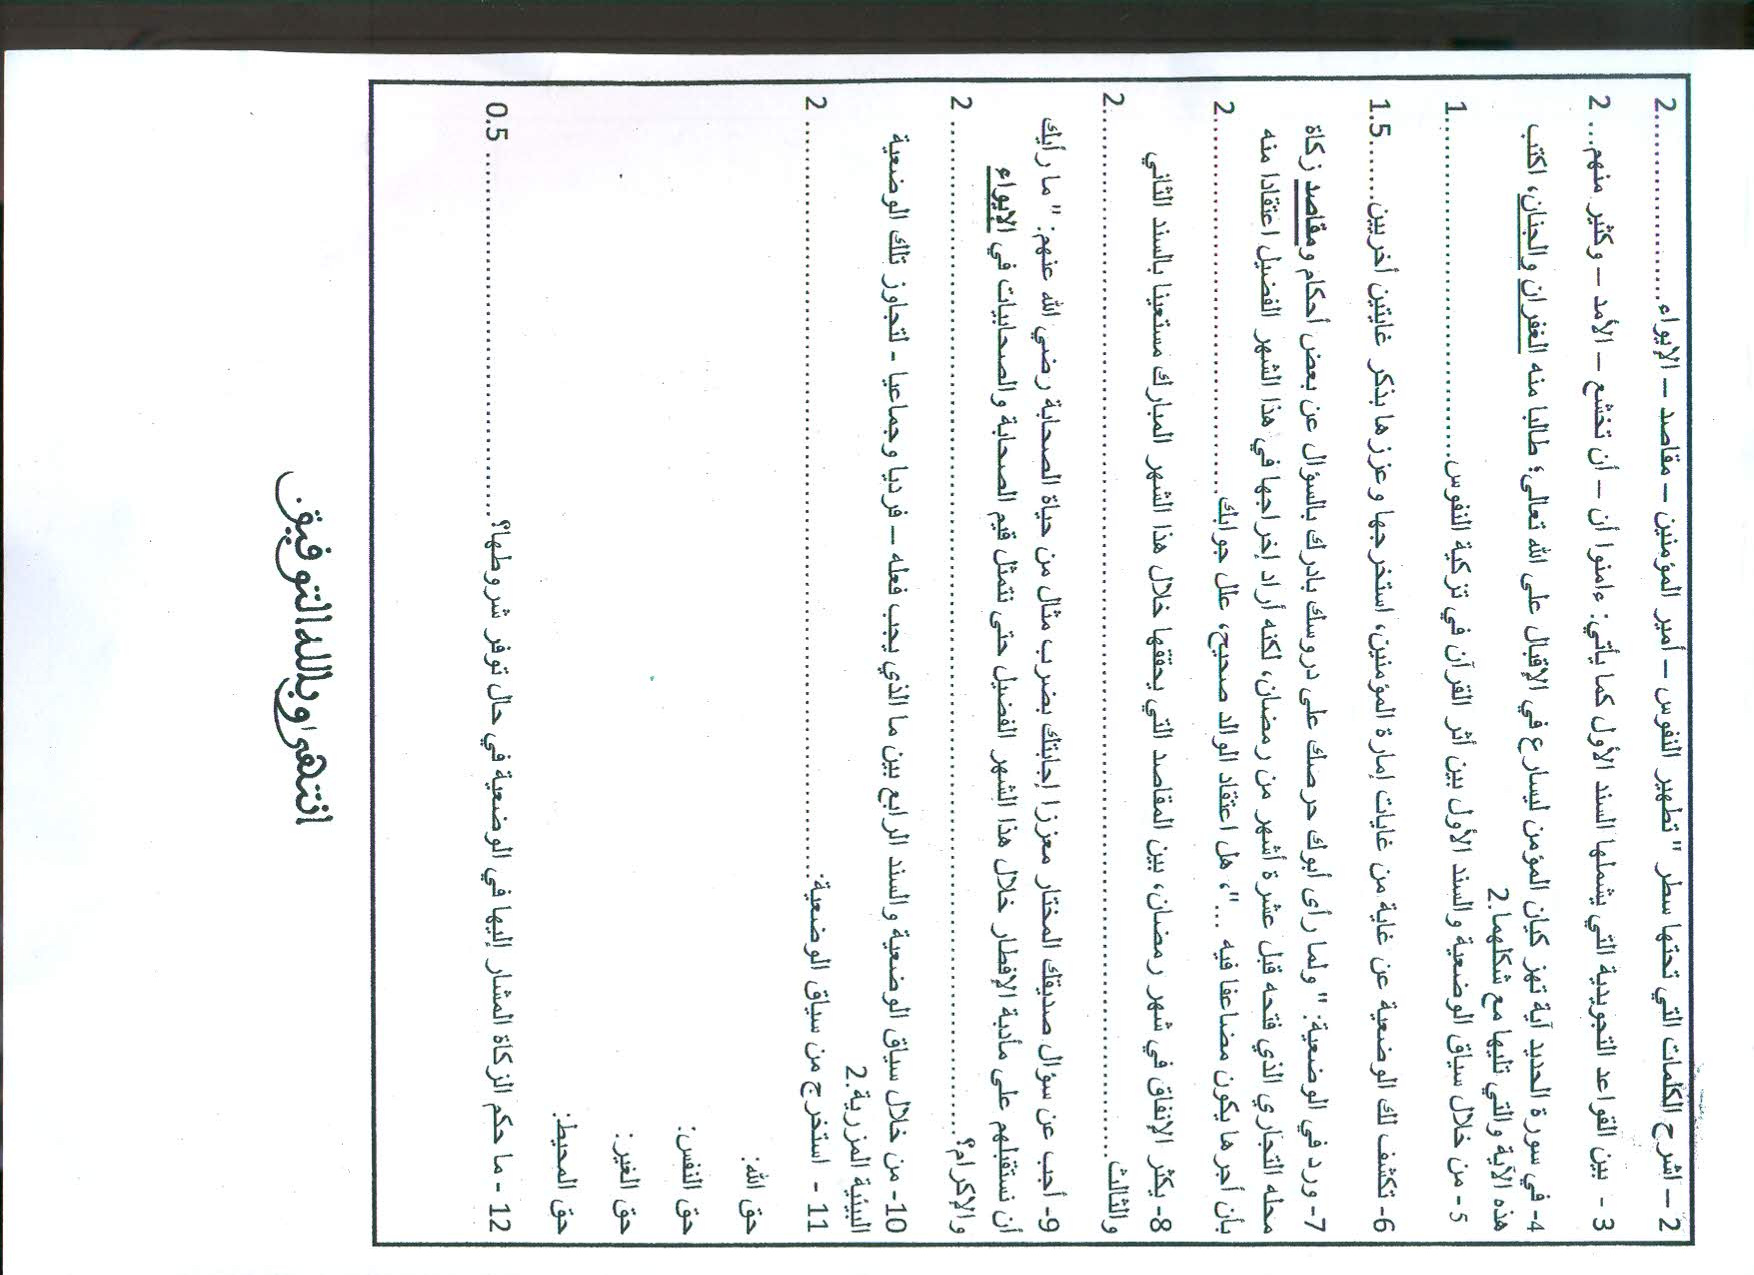 2 – اشرح الكلمات التي تحتها سطر "تطهير النفوس – أمير المؤمنين – مقاصد – الإيواء....................2
3 - بين القواعد التجويدية التي يشملها السند الأول كما يأتي: ءامنوا أن – أن تخشع – الأمد – وكثير منهم....2
4- في سورة الحديد آية تهز كيان المؤمن ليسارع في الإقبال على الله تعالى؛ طالبا منه الغفران والجنان، اكتب
هذه الآية والتي تليها مع شكلهما.2
5 - من خلال سياق الوضعية والسند الأول بين أثر القرآن في تزكية النفوس........................................1
6- تكشف لك الوضعية عن غاية من غايات إمارة المؤمنين، استخرجها وعززها بذكر غايتين أخريين......1.5
7- ورد في الوضعية: "ولما رأى أبوك حرصك على دروسك بادرك بالسؤال عن بعض أحكام ومقاصد زكاة
محله التجاري الذي فتحه قبل عشرة أشهر من رمضان، لكنه أراد إخراجها في هذا الشهر الفضيل اعتقادا منه
بأن أجرها يكون مضاعفا فيه ..."، هل اعتقاد الوالد صحيح، علل جوابك............................................2
8- يكثر الإنفاق في شهر رمضان، بين المقاصد التي يحققها خلال هذا الشهر المبارك مستعينا بالسند الثاني
والثالث............................................................................................................2
9- أجب عن سؤال صديقك المختار معززا إجابتك بضرب مثال من حياة الصحابة رضي الله عنهم: "ما رأيك
أن نستقبلهم على مأدبة الإفطار خلال هذا الشهر الفضيل حتى نتمثل قيم الصحابة والصحابيات في الإيواء
والإكرام؟..........................................................................................................2
10- من خلال سياق الوضعية والسند الرابع بين ما الذي يجب فعله – فرديا وجماعيا - لتجاوز تلك الوضعية
البيئية المزرية.2
11 - استخرج من سياق الوضعية:......................................................................2
حق الله:
حق النفس:
حق الغير:
حق المحيط:
12 - ما حكم الزكاة المشار إليها في الوضعية في حال توفر شروطها؟........................................0.5
انتهى وبالله التوفيق